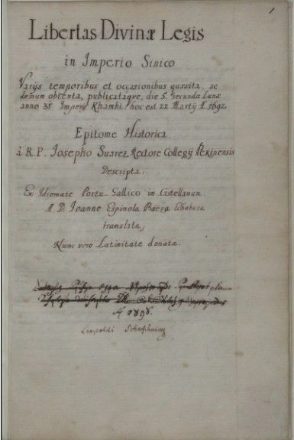 1
Libertas Divinæ Legis
in Imperio Sinico
Varijs temporibus et occasionibus quæsita, ac
demum obtenta, publicataque, die 5. Secundæ Lunæ
anno 31 Imperij Khamhi hoc est 22 Martij A. 1692.
Epitome Historica
à R. P. Josepho Suarez Rectore Collegij Pekinensis
Descripta.
Ex Idiomate Portu Gallico in Castellanum
A D. Joanne Espinola
translata,
Nunc vero Latinitate donata.
Leopoldi